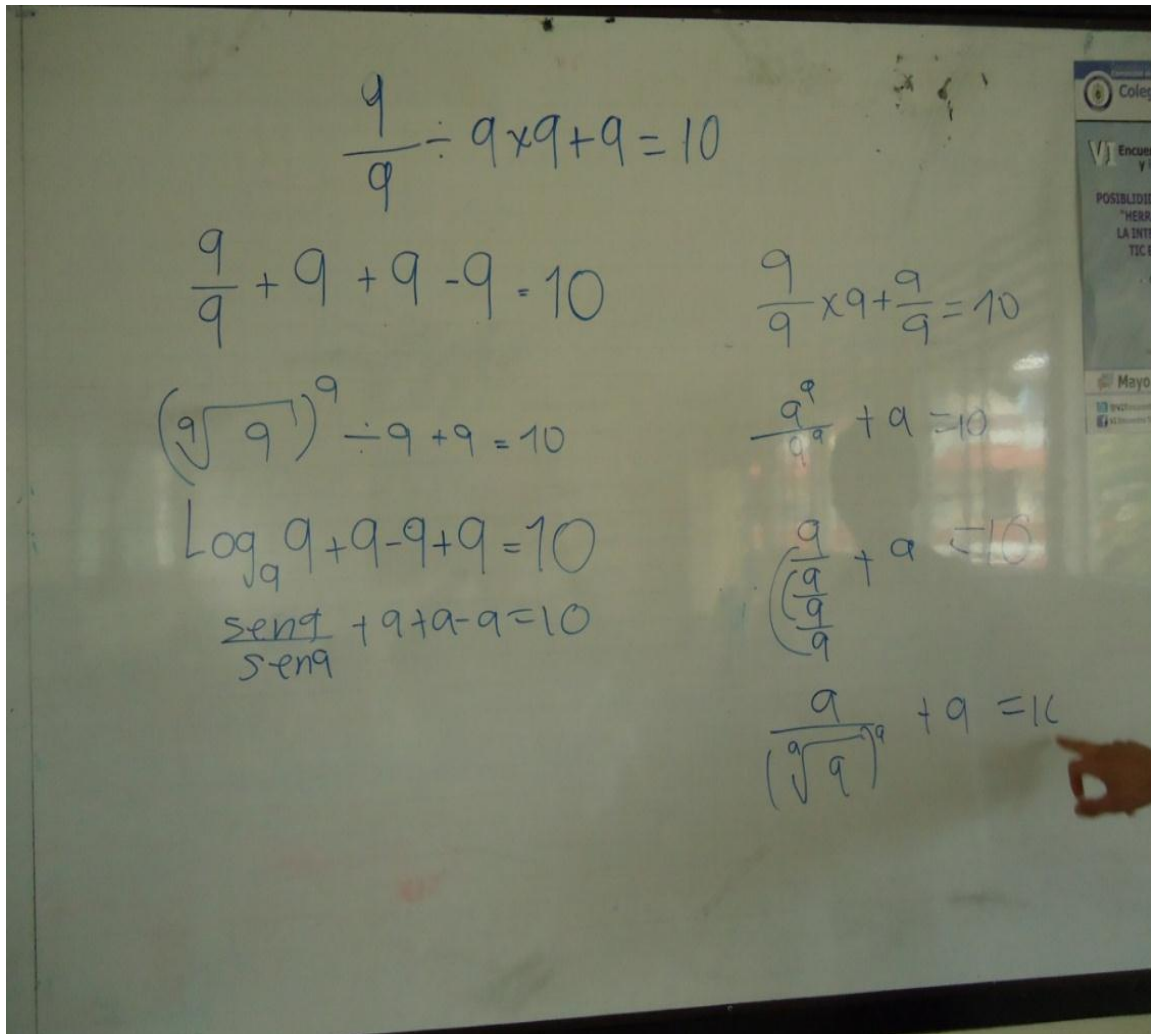 9/9 ÷ 9×9+9=10
9/9 + 9 + 9 - 9 = 10
(⁹√9)⁹ ÷ 9 + 9 = 10
Log₉ 9+9-9+9=10
sen9/sen9 + 9+9-9=10
9/9 ×9+ 9/9 =10
9⁹/9⁹ + 9 =10
(9/(9/9/9) + 9 =10
9/(⁹√9)⁹ + 9 =10
Coleg
VI Encue
Y
POSIBLIDI
"HERR
LA INTE
TIC E
Mayo